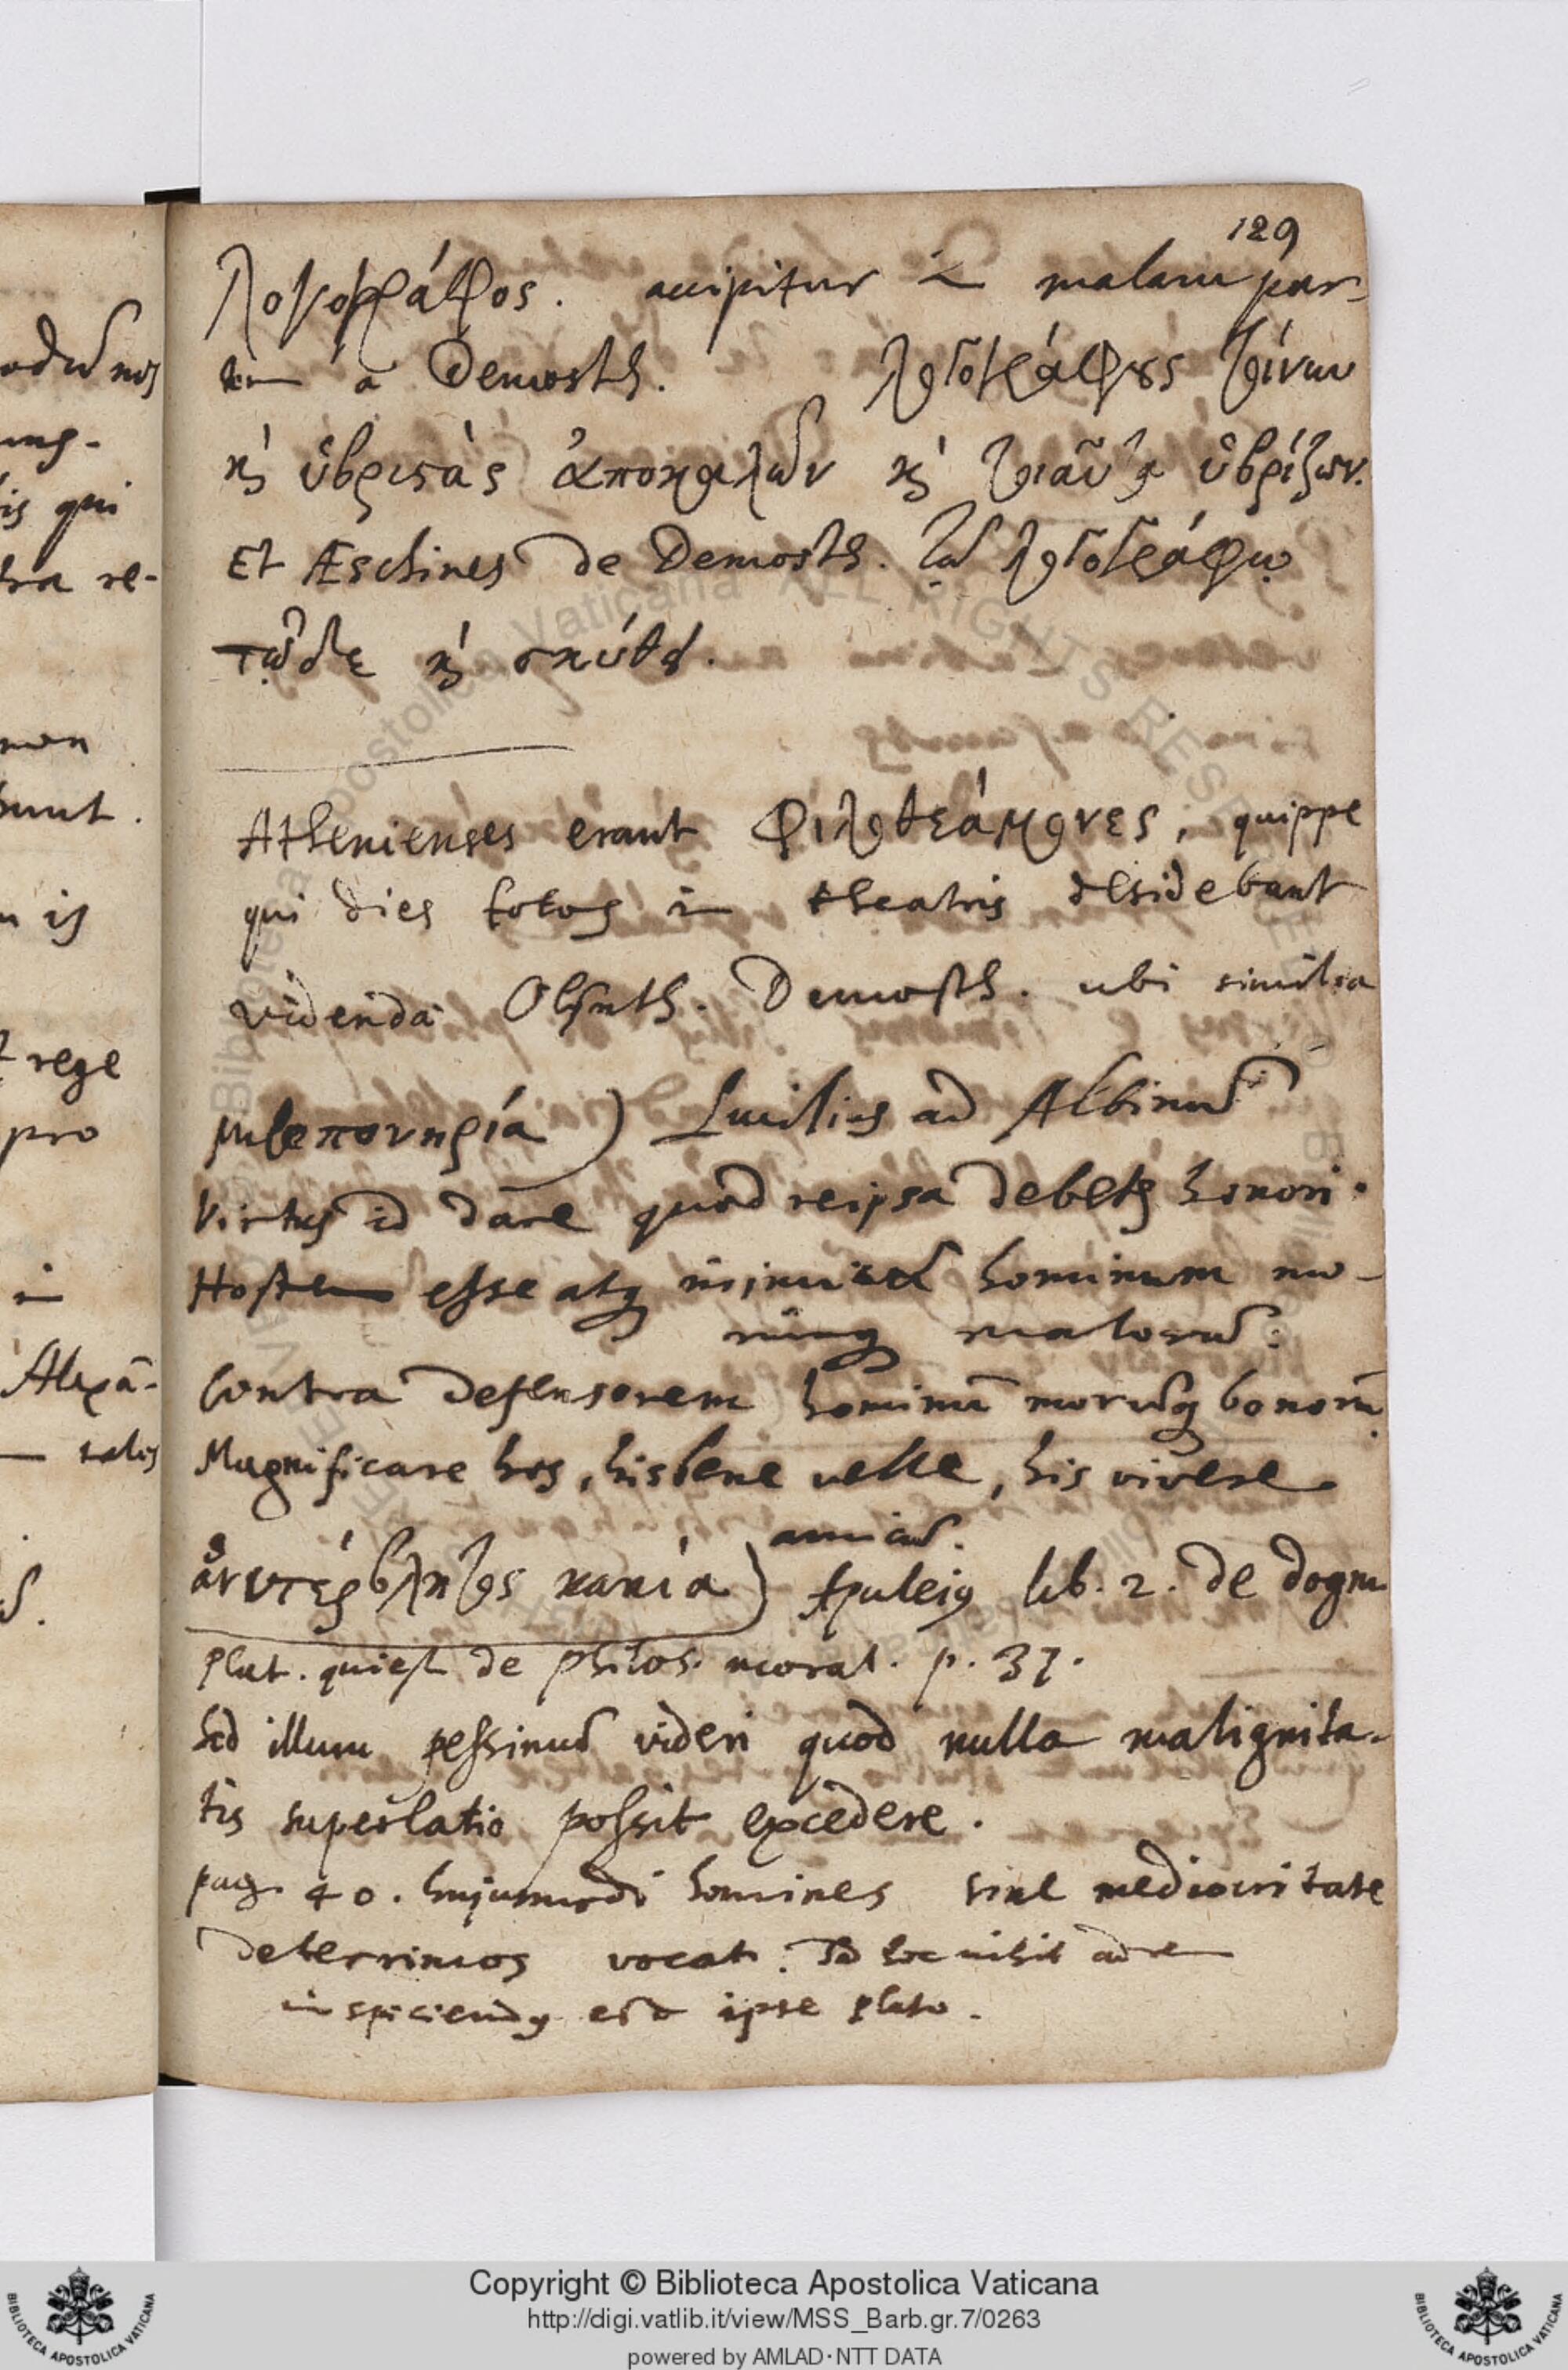 129
λογογράφος. accipitur in malam par-
tem a Demosth. λογογράφους τοίνυν
καὶ ὑβριστὰς ἀποκαλῶν καὶ τοιαῦτα ὑβρίζων.
Et Æschines de Demosth. τῷ λογογράφῳ
τῷδε καὶ σκύθῃ.
Athenienses erant φιλοθεάμονες, quippe
qui dies totos in theatris desidebant
videnda Olynth. Demosth. ubi similia
μισοπονηρία) Lucilius ad Albinum
Virtus id dare quod reipsa debetur honori.
Hostem esse atque inimicum hominum mo-
rumque malorum.
Contra defensorem hominū morumque bonorū
Magnificare hos, his bene velle, his vivere
amicum.
ἀνυπέρβλητος κακία) Apuleius lib. 2. de dogm.
Plat. qui est de philos. moral. p. 37.
Sed illum pessimum videri quod nulla malignita-
tis superlatio possit excedere.
pag. 40. hujusmodi homines sine mediocritate
deterrimos vocat. Sed hoc nihil ad rem
inspiciendus ipse Plato.
odum nos
is qui
tra re-
non
bunt.
is
rege
pro
in
Alexā-
talis
Copyright © Biblioteca Apostolica Vaticana
http://digi.vatlib.it/view/MSS_Barb.gr.7/0263
powered by AMLAD·NTT DATA
BIBLIOTECA APOSTOLICA VATICANA
BIBLIOTECA APOSTOLICA VATICANA